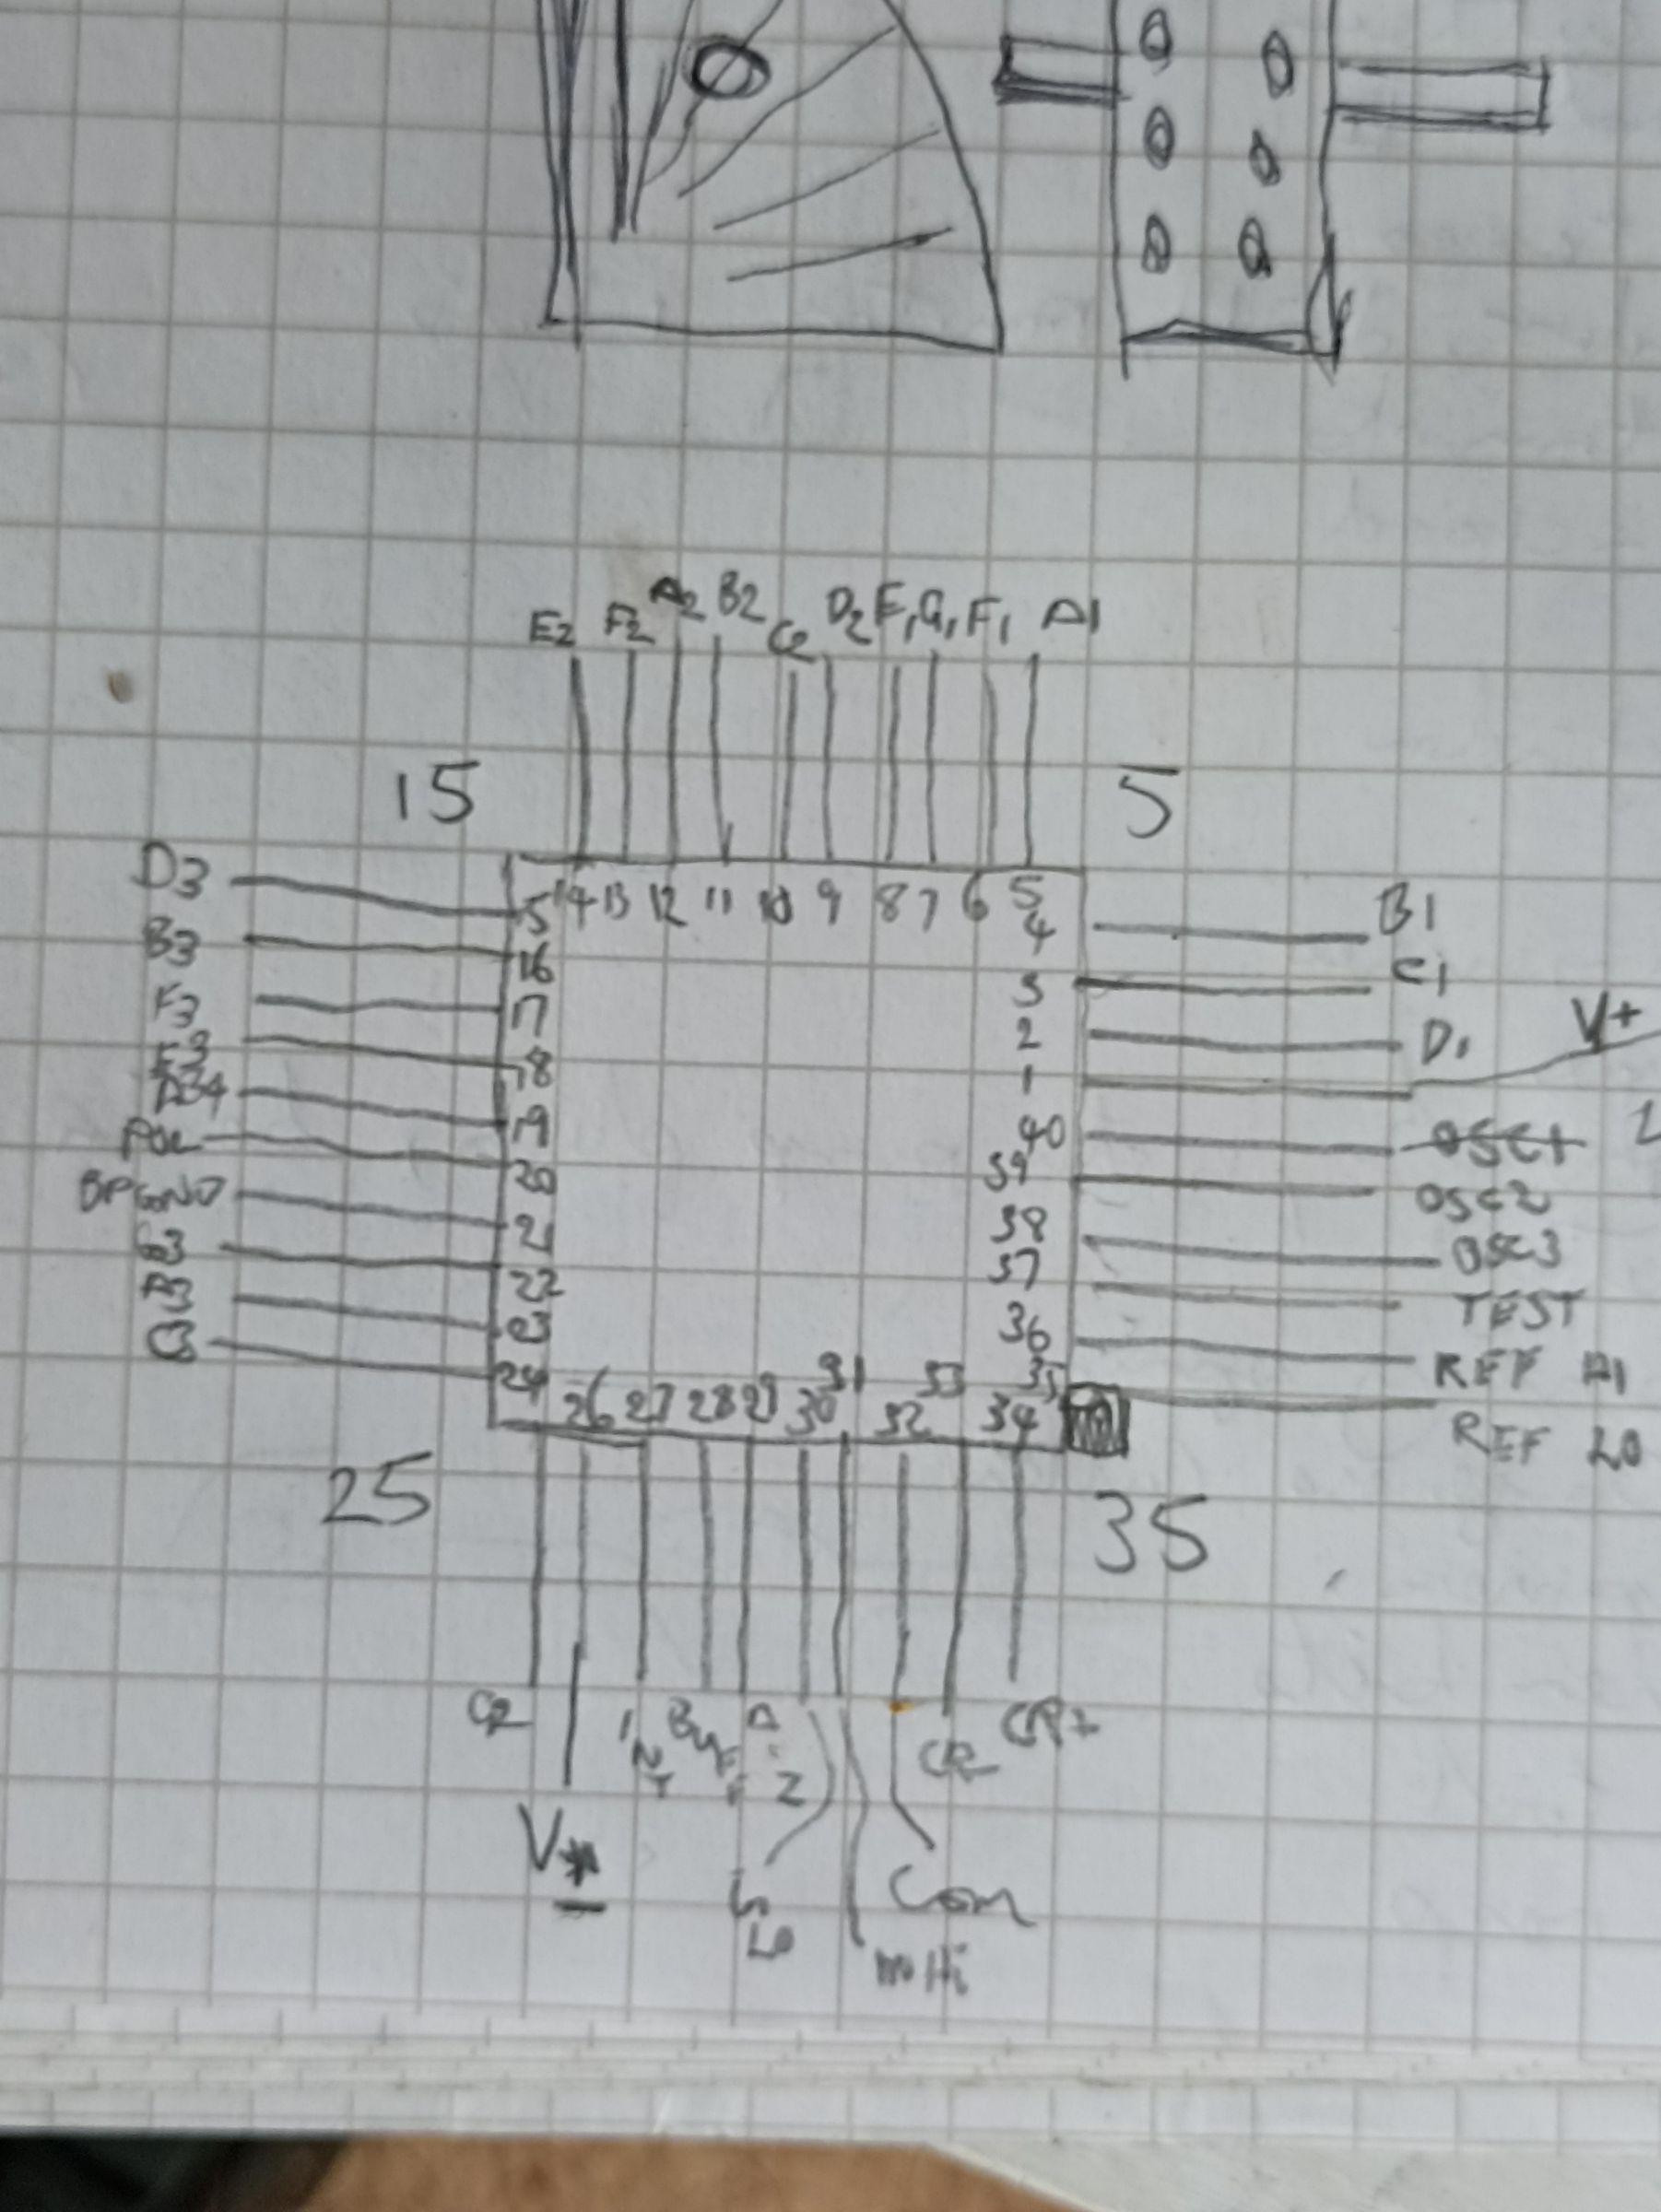 E2 F2 A2 B2 C2 D2 E1 G1 F1 A1
15 5
14 13 12 11 10 9 8 7 6 5
D3 15 4 B1
B3 16 3 C1
F3 17 2 D1
E3 18 1 V+
19 40 OSC1
POL 20 39 OSC2
BPGND 21 38 OSC3
G3 22 37 TEST
A3 23 36 REF HI
C3 24 35 REF LO
26 27 28 29 30 31 32 33 34
25 35
G2 INT BUFF AZ CR CR+
V-
LO COM
IN Hi